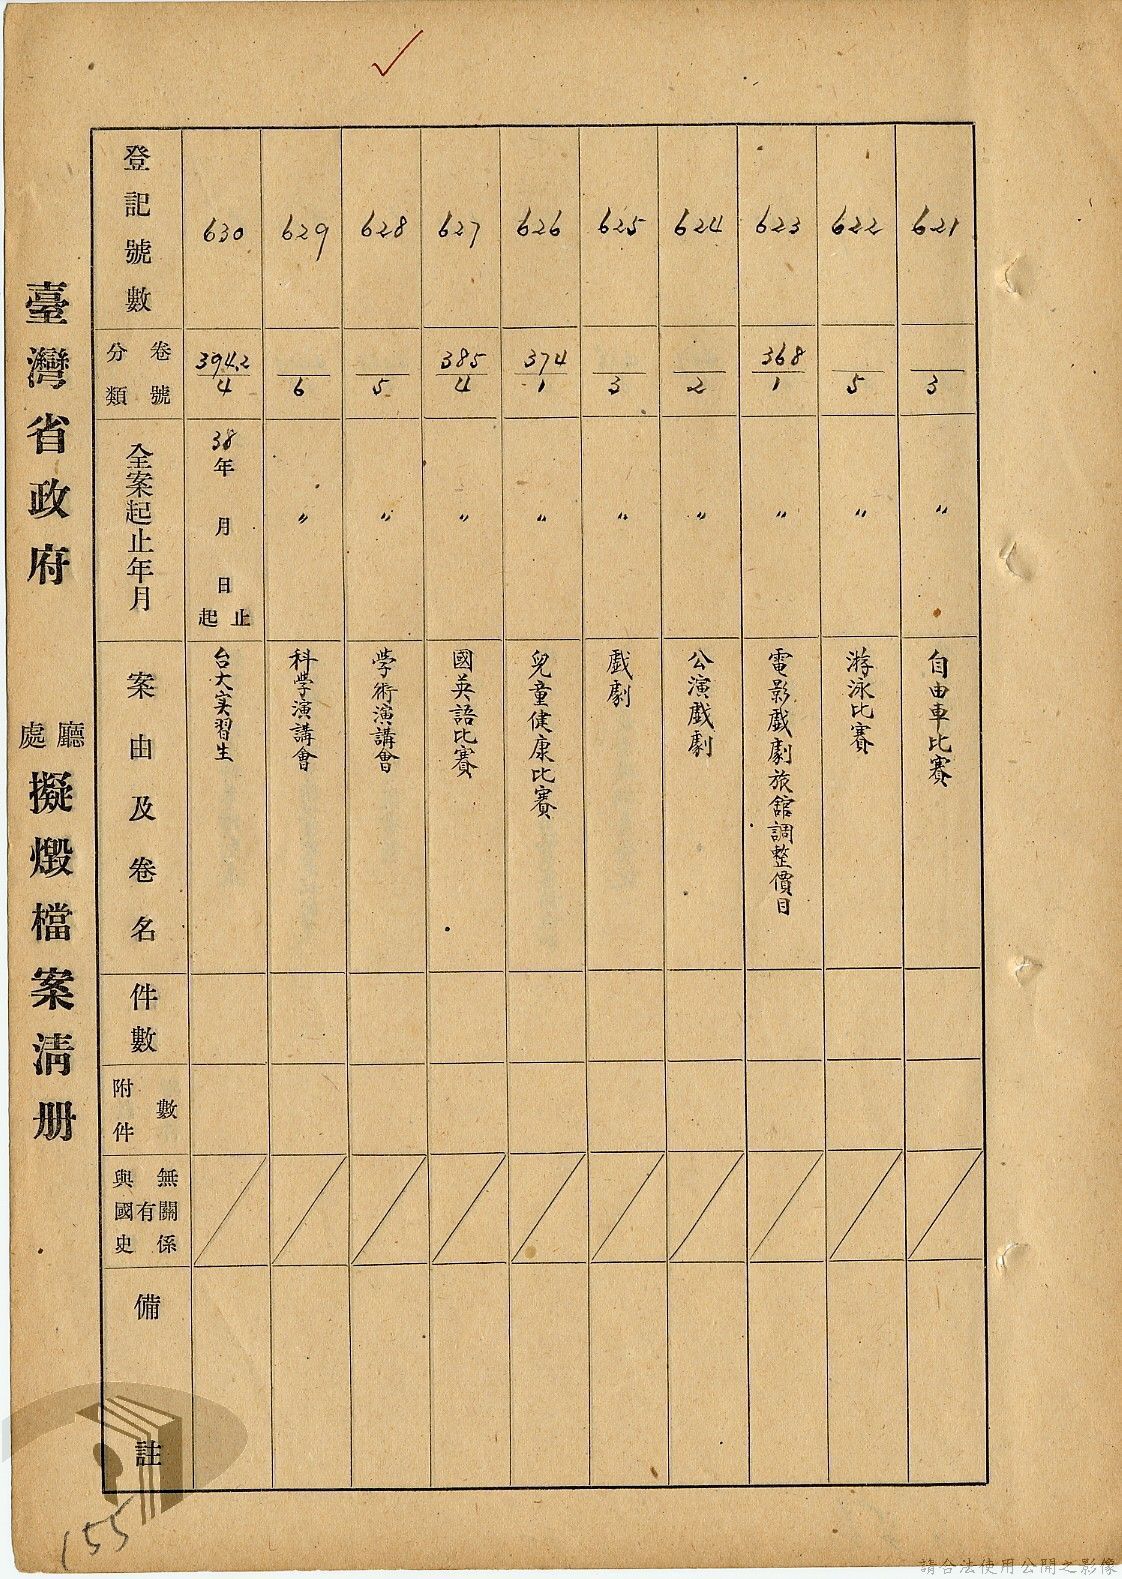 臺灣省政府 廳處 擬燬檔案清册
登記號數
卷號
分類
全案起止年月
案由及卷名
件數
附件數
與國史有無關係
備註
630
394.2
4
38年 月 日 起 止
台大实習生
629
6
〃
科学演講會
628
5
〃
學術演講會
627
385
4
〃
國英語比賽
626
374
1
〃
兒童健康比賽
625
3
〃
戲劇
624
2
〃
公演戲劇
623
368
1
〃
電影戲劇旅館調整價目
622
5
〃
游泳比賽
621
3
〃
自由車比賽
155
請合法使用公開之影像